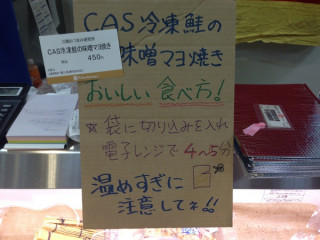 CAS冷凍鮭の
味噌マヨ焼き
CAS冷凍鮭の味噌マヨ焼き
450円
おいしい食べ方!
※袋に切り込みを入れ
電子レンジで4~5分
温めすぎに
注意してネ!!